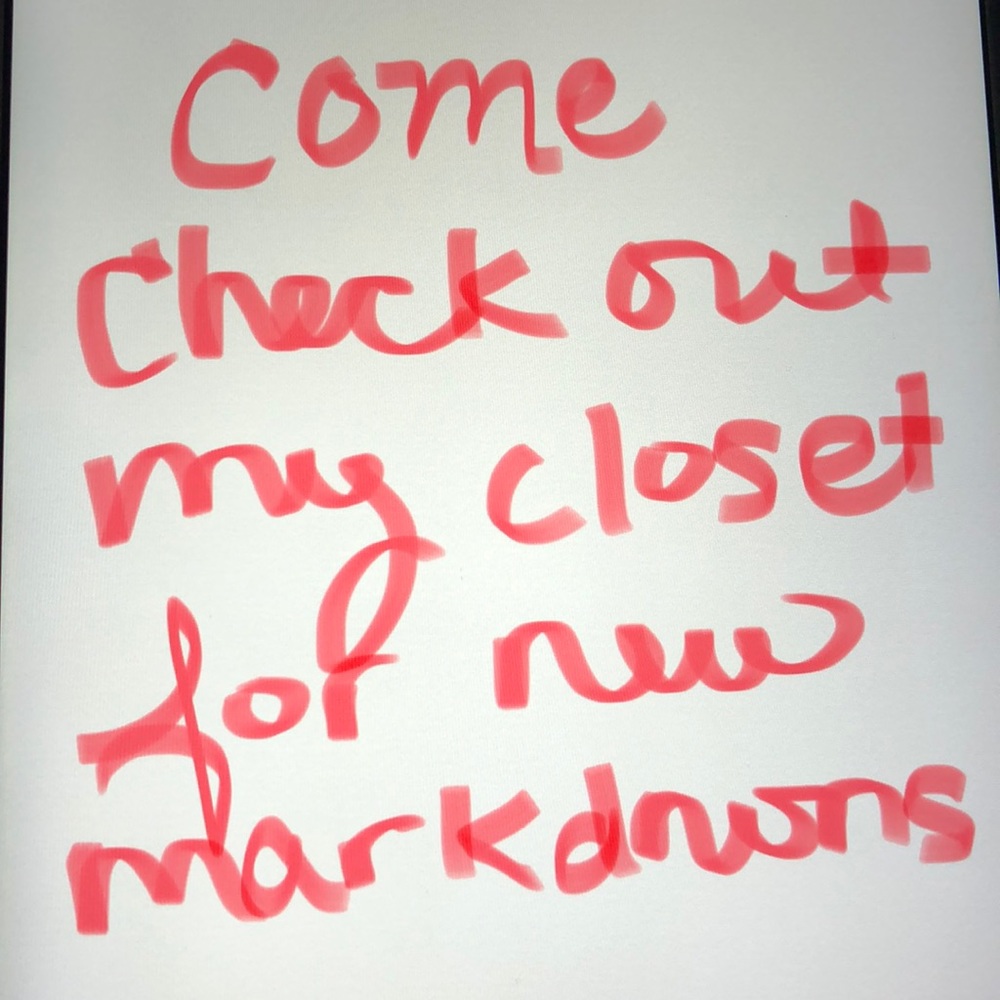 Come
Check out
my closet
for new
markdowns